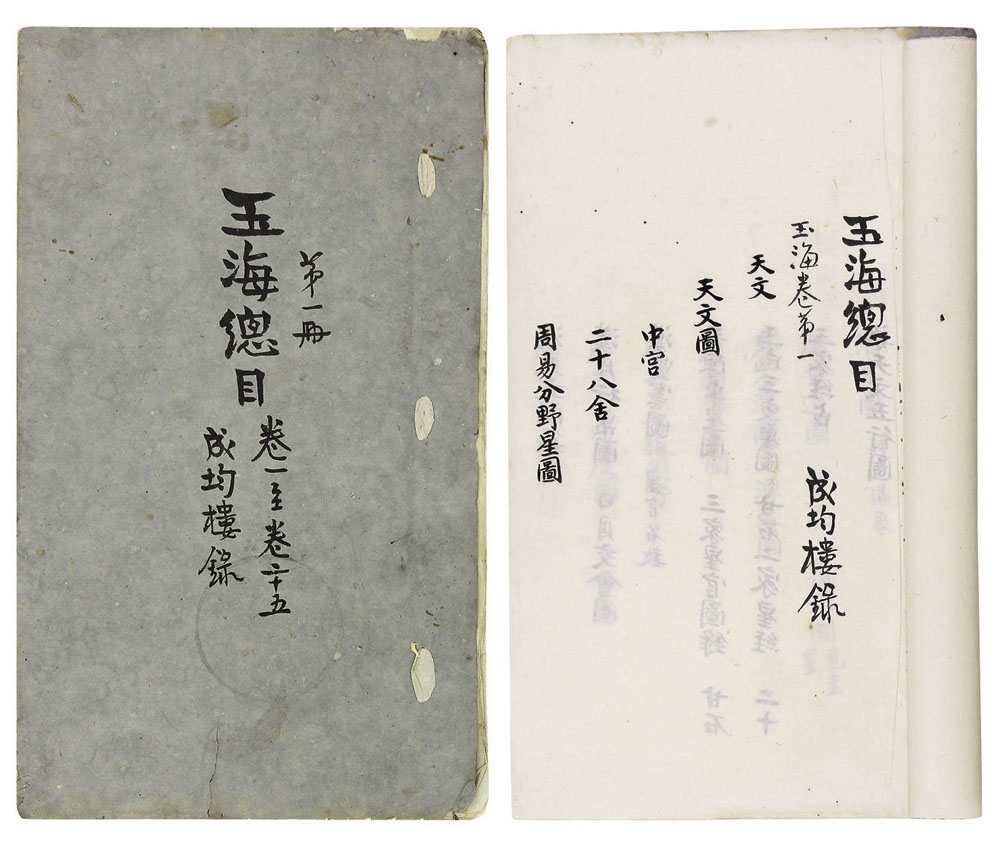 第一冊
玉海總目
卷一至卷二十五
成均樓錄
玉海總目
成均樓錄
玉海卷第一
天文
天文圖
中宮
二十八舍
周易分野星圖